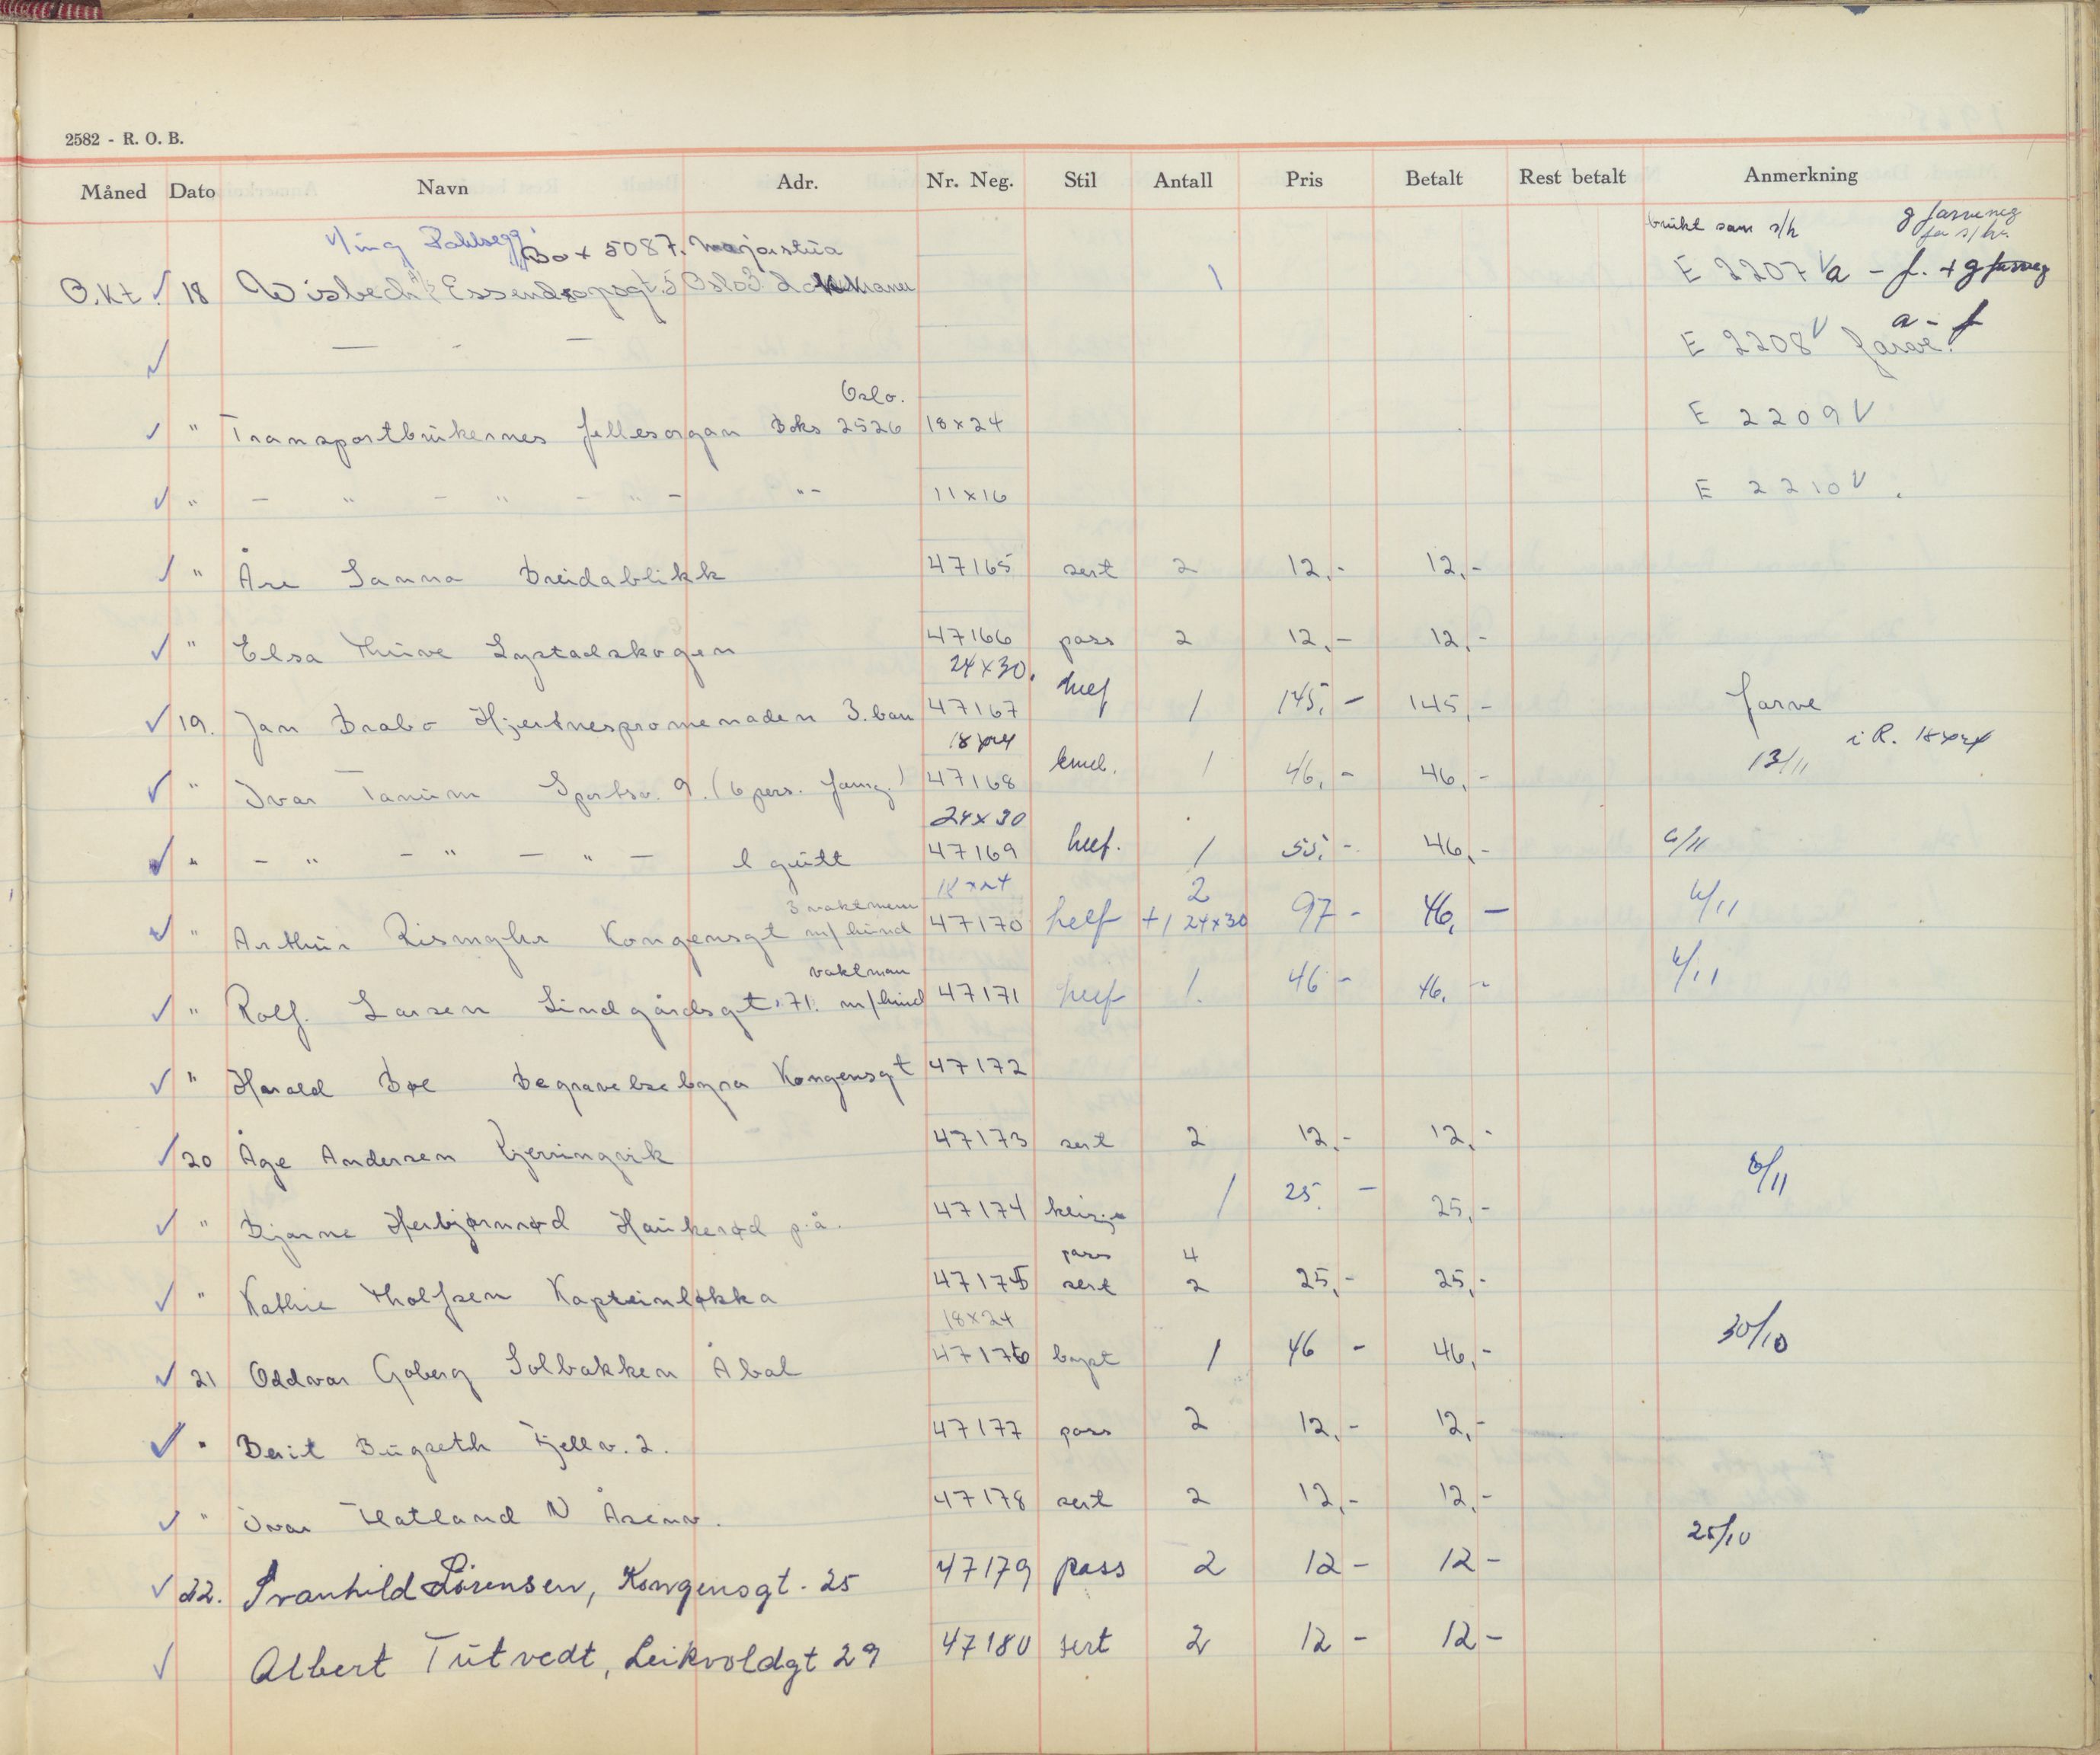 2582 - R. O. B.
Måned Dato Navn Adr. Nr. Neg. Stil Antall Pris Betalt Rest betalt Anmerkning
brukt som s/h g farveneg
for s/h.
v/ing Box 5087. Majorstua
Okt. ✓ 18 Wisbech Essendropsgt. 5 Oslo 3 1 E 2207 ✓ a - f. + g farveneg
a - f
✓ — - — E 2208 ✓ farve.
Oslo.
✓ " Transportbrukernes fellesorgan Boks 2526 18x24 E 2209 ✓
✓ " - " - " - " - " - 11x16 E 2210 ✓
✓ " Åre Sanna Breidablikk 47165 sert 2 12,- 12,-
✓ " Elsa Thuve Lystadskogen 47166 pass 2 12,- 12,-
24x30.
✓ 19. Jan Brabo Hjertnespromenaden 3. 47167 helf 1 145,- 145,- farve
18x24 i R. 18x24
✓ " Ivar Tanum Sportsv. 9. (6 pers. ) 47168 1 46,- 46,- 13/11
24x30
✓ " - " - " - " - 1 gutt 47169 helf. 1 55,- 46,- 6/11
3 vaktmenn 18x24 2
✓ " Arthur Kongensgt m/hund 47170 helf +1 24x30 97 - 46,- 6/11
vaktman
✓ " Rolf. Larsen Lindgårdsgt. 71. m/hund 47171 helf 1. 46 - 46. - 6/11
✓ " Harald Bøe Begravelsebyra Kongensgt 47172
✓ 20 Åge Andersen Kjerringvik 47173 sert 2 12,- 12,-
✓ " Bjarne Herbjørnrød Haukerød p.å. 47174 1 25. - 25,- 6/11
pass 4
✓ " Kathie Tholfsen Kapteinløkka 47175 sert 2 25,- 25,-
18x24
✓ 21 Oddvar Goberg Solbakken Åbal 47176 byst 1 46 - 46,- 30/10
✓ " Berit Bugseth Fjellv. 2. 47177 pass 2 12,- 12,-
✓ " Ivar Hatland N Åsenv. 47178 sert 2 12,- 12,-
25/10
✓ 22. Svanhild Sørensen, Kongensgt. 25 47179 pass 2 12 - 12 -
✓ Albert Tutvedt, Leikvoldgt 29 47180 sert 2 12 - 12 -